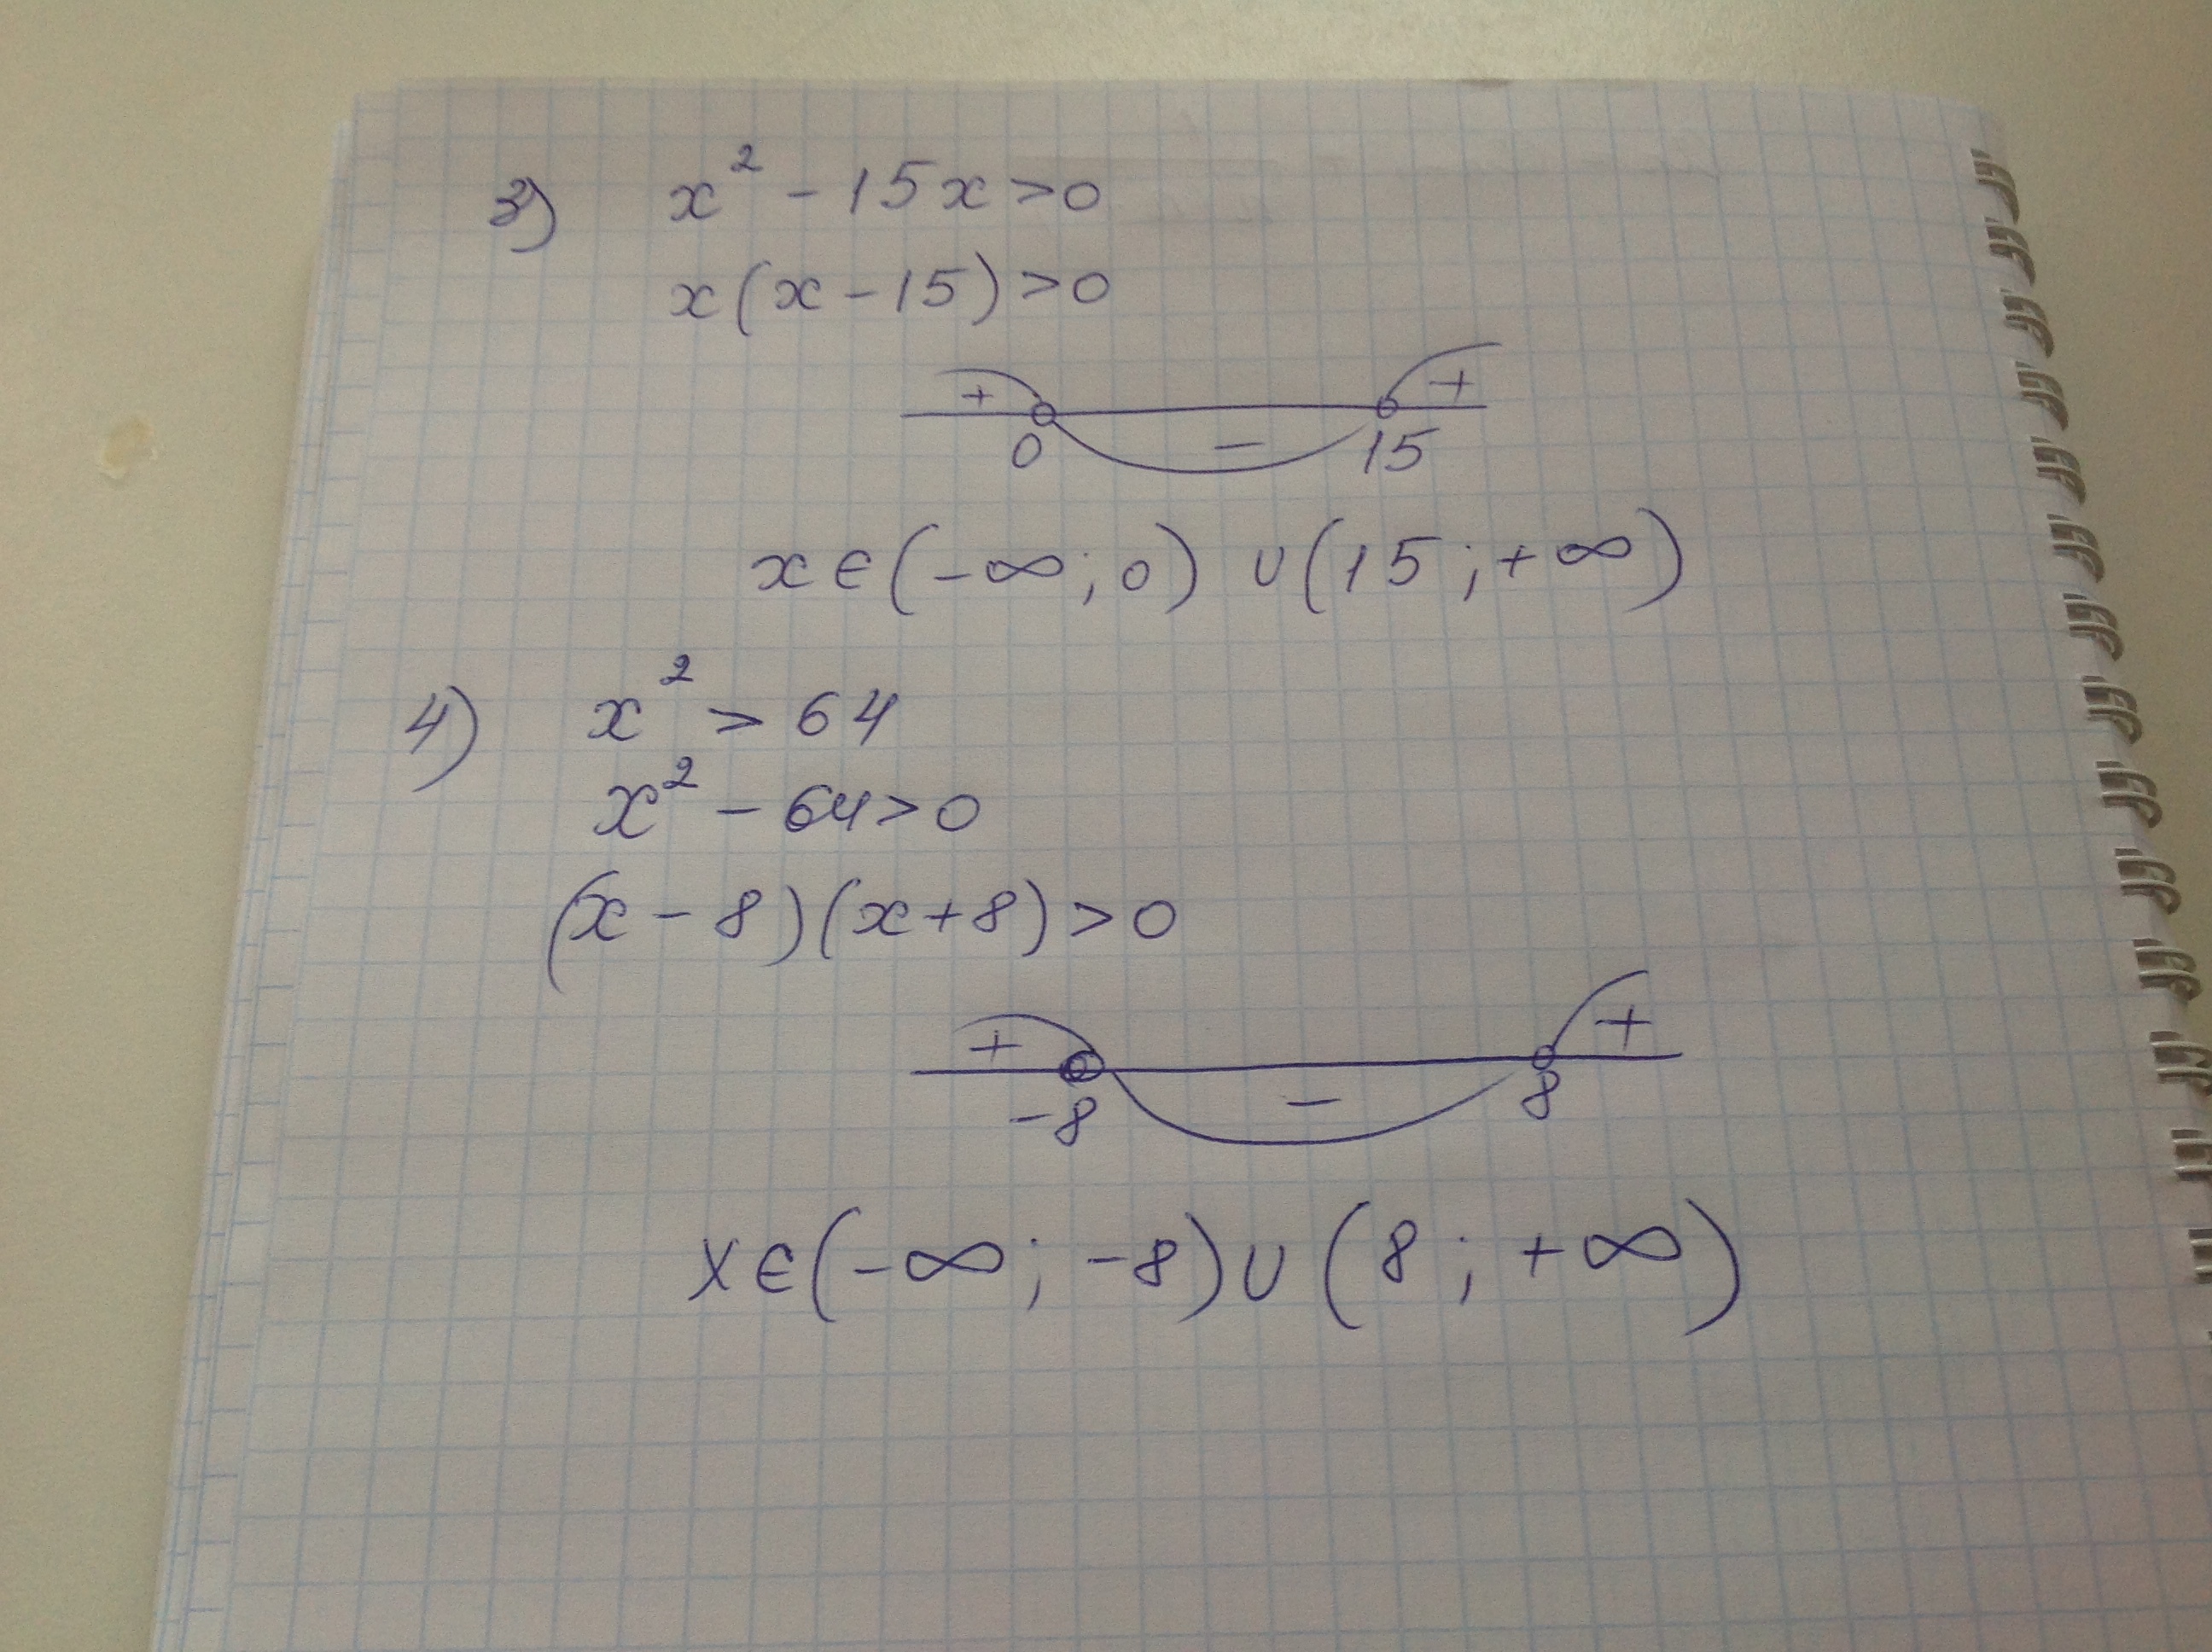 3) x² - 15x > 0
x(x - 15) > 0
+ - +
0 15
x ∈ (-∞; 0) ∪ (15; +∞)
4) x² > 64
x² - 64 > 0
(x - 8)(x + 8) > 0
+ - +
-8 8
x ∈ (-∞; -8) ∪ (8; +∞)